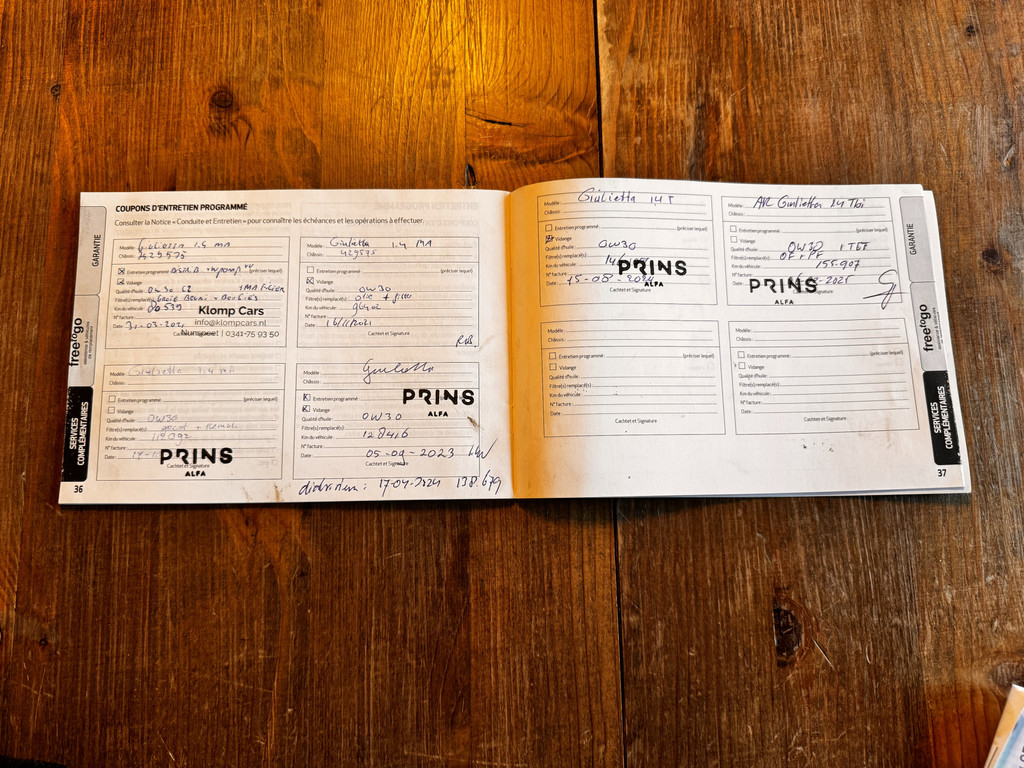 COUPONS D'ENTRETIEN PROGRAMMÉ
Consulter la Notice « Conduite et Entretien » pour connaître les échéances et les opérations à effectuer.
GARANTIE
freetogo
SERVICES COMPLÉMENTAIRES
Modèle: 1.4 MA
Châssis: 429575
Entretien programmé (préciser lequel)
Vidange
Qualité d'huile: 0W30
Filtre(s) remplacé(s)
Km du véhicule:
N° facture
Date: 31-03-202
Klomp Cars
info@klompcars.nl
Nunspeet | 0341-75 93 50
Cachet et Signature
Modèle: Giulietta 1.4 MA
Châssis: 429575
Entretien programmé (préciser lequel)
Vidange
Qualité d'huile: 0W30
Filtre(s) remplacé(s) olie + filter
Km du véhicule:
N° facture
Date: 16/11/2021
Cachet et Signature
Modèle: Giulietta 1.4 MA
Châssis:
Entretien programmé (préciser lequel)
Vidange
Qualité d'huile: 0W30
Filtre(s) remplacé(s)
Km du véhicule:
N° facture
Date:
PRINS
ALFA
Cachet et Signature
Modèle: Giulietta
Châssis:
Entretien programmé
Vidange
PRINS
ALFA
Qualité d'huile: 0W30
Filtre(s) remplacé(s)
Km du véhicule: 128416
N° facture
Date: 05-09-2023
Cachet et Signature
17-04-2024 138.679
36
Modèle: Giulietta 1,4 T
Châssis:
Entretien programmé (préciser lequel)
Vidange
Qualité d'huile: 0W30
Filtre(s) remplacé(s)
Km du véhicule:
N° facture
Date: 15-08-2024
PRINS
ALFA
Cachet et Signature
Modèle: AR Giulietta 1.4 Tbi
Châssis:
Entretien programmé (préciser lequel)
Vidange
Qualité d'huile: 0W30
Filtre(s) remplacé(s) OF + PF
Km du véhicule: 155.907
N° facture
Date: 2025
PRINS
ALFA
Modèle:
Châssis:
Entretien programmé (préciser lequel)
Vidange
Qualité d'huile:
Filtre(s) remplacé(s)
Km du véhicule:
N° facture
Date:
Cachet et Signature
Modèle:
Châssis:
Entretien programmé (préciser lequel)
Vidange
Qualité d'huile:
Filtre(s) remplacé(s)
Km du véhicule:
N° facture
Date:
Cachet et Signature
GARANTIE
freetogo
SERVICES COMPLÉMENTAIRES
37